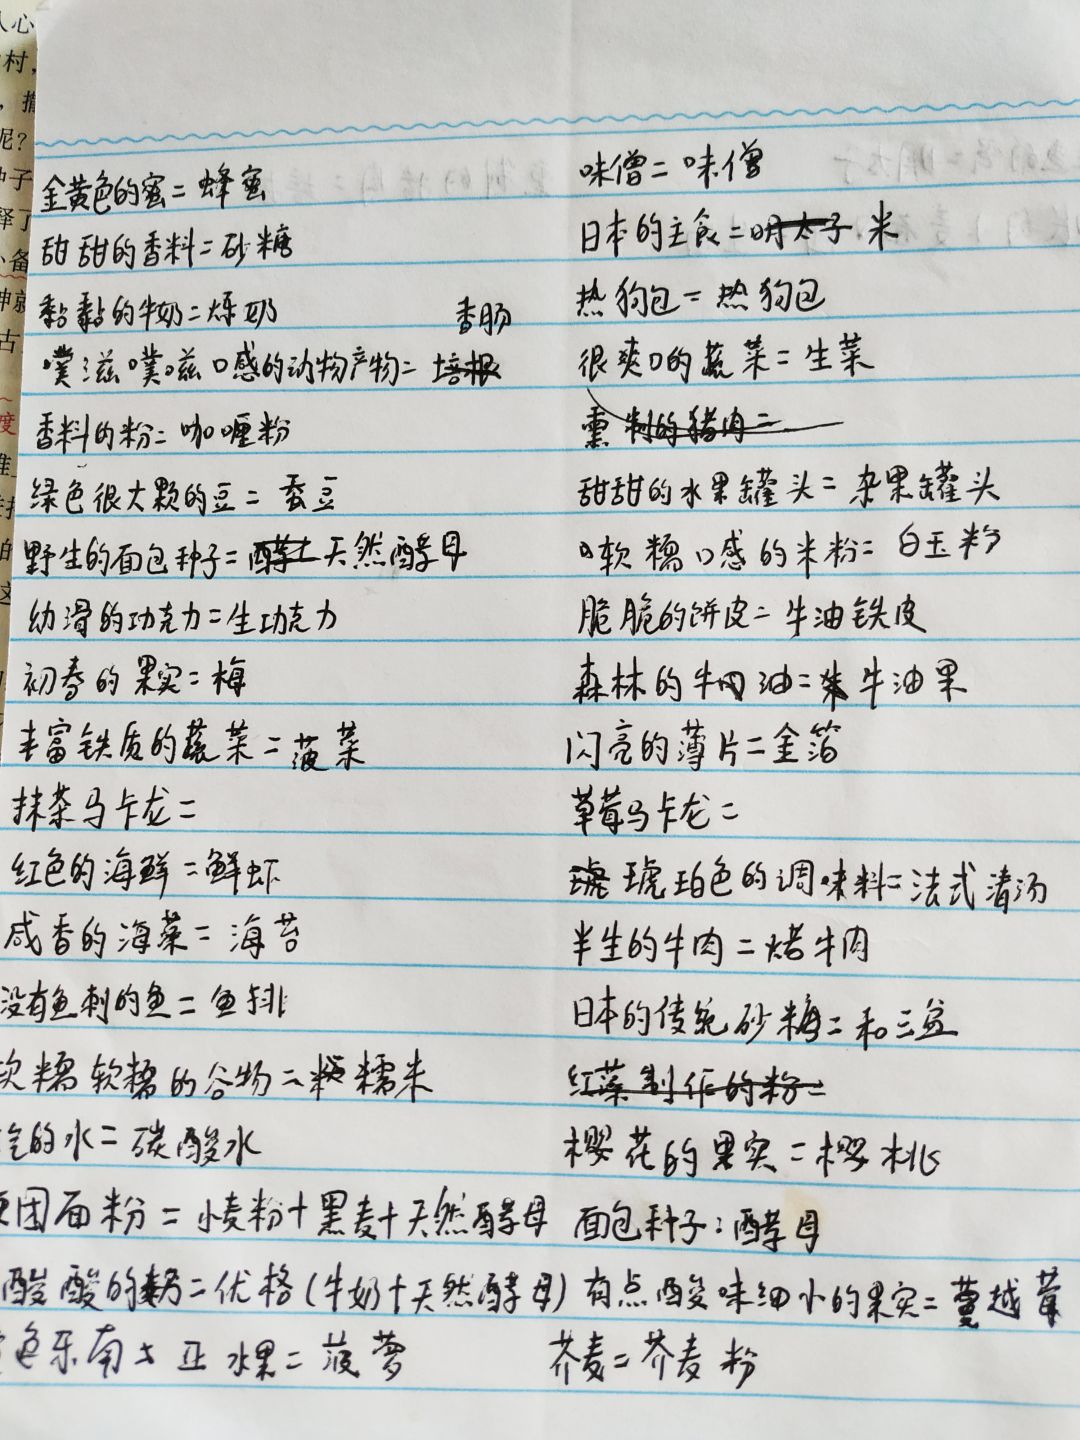 金黄色的蜜=蜂蜜
甜甜的香料=砂糖
黏黏的牛奶=炼奶
香肠
噗滋噗滋口感的动物产物=培根
香料的粉=咖喱粉
绿色很大颗的豆=蚕豆
野生的面包种子=天然酵母
幼滑的功克力=生功克力
初春的果实=梅
丰富铁质的蔬菜=菠菜
抹茶马卡龙=
红色的海鲜=鲜虾
咸香的海菜=海苔
没有鱼刺的鱼=鱼排
软糯软糯的谷物=糯米
的水=碳酸水
团面粉=小麦粉+黑麦+天然酵母
酸酸的奶=优格(牛奶+天然酵母)
色东南亚水果=菠萝
味僧=味僧
日本的主食=明太子米
热狗包=热狗包
很爽口的蔬菜=生菜
熏制的猪肉=
甜甜的水果罐头=杂果罐头
口软糯口感的米粉=白玉粉
脆脆的饼皮=牛油铁皮
森林的牛油=牛油果
闪亮的薄片=金箔
草莓马卡龙=
琥珀色的调味料=法式清汤
半生的牛肉=烤牛肉
日本的传统砂糖=和三盆
红菜制作的粉=
樱花的果实=樱桃
面包种子:酵母
有点酸味细小的果实=蔓越莓
荞麦=荞麦粉